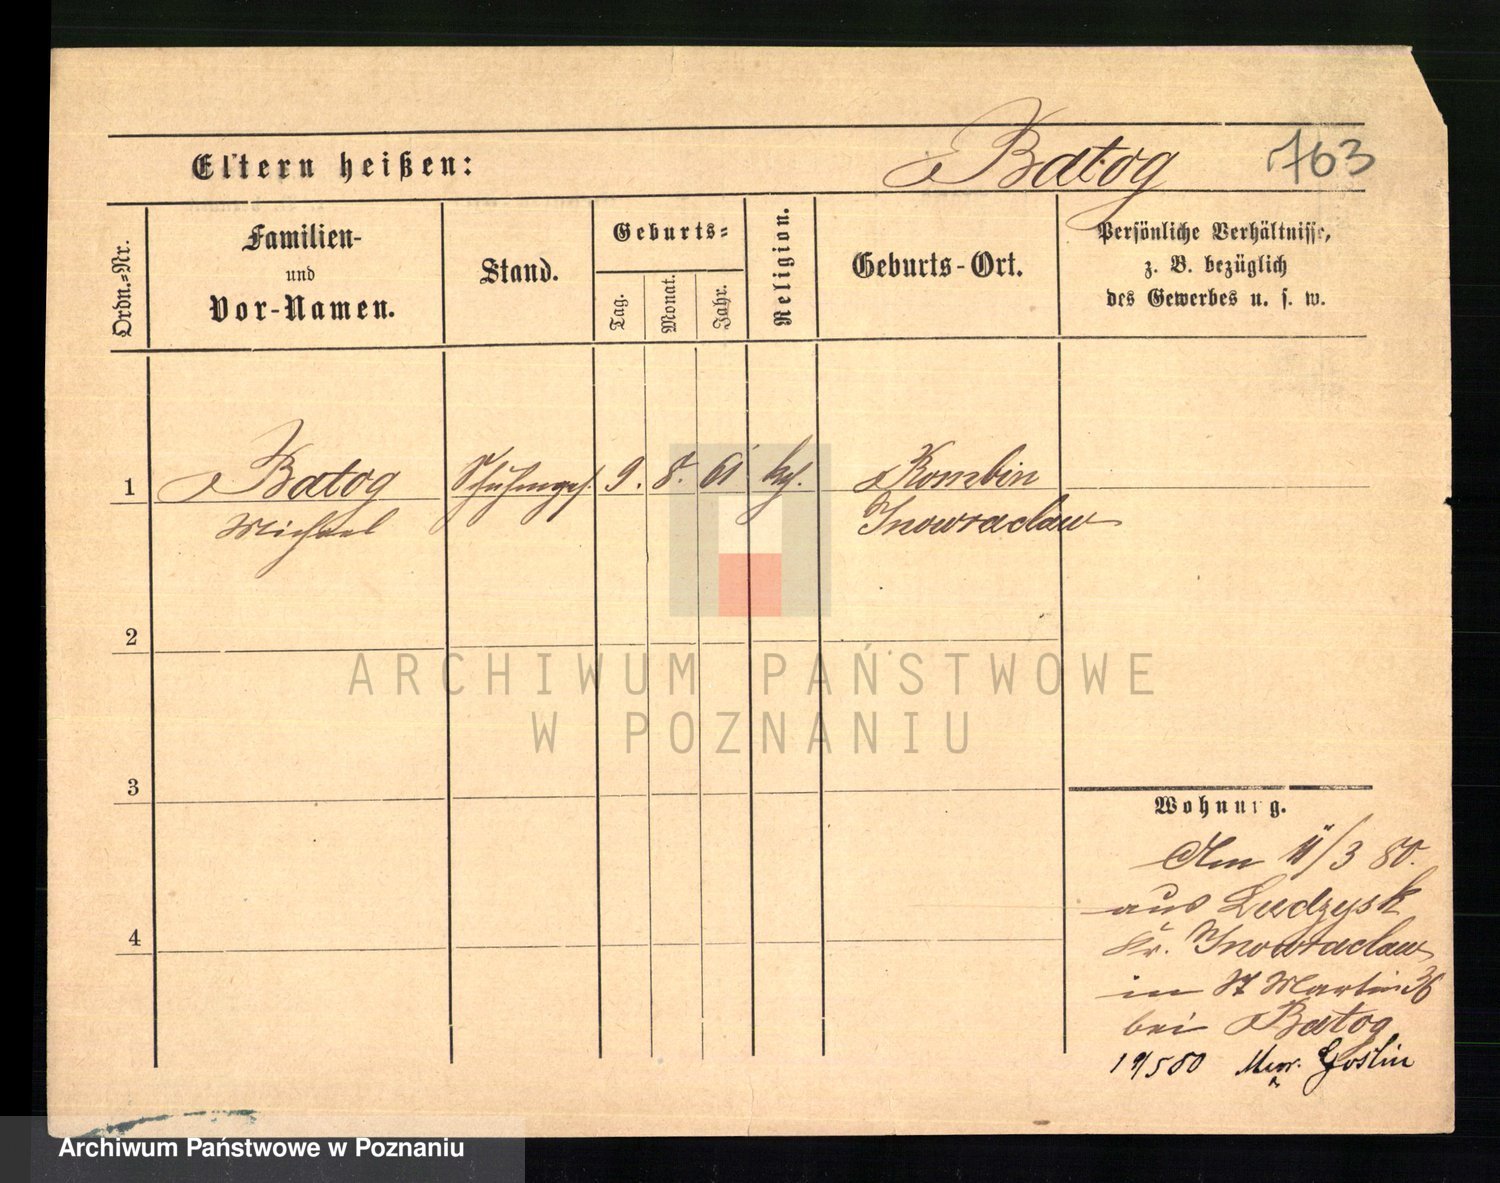 Eltern heißen: Batog 763
Ordn.-Nr.
Familien-
und
Vor-Namen.
Stand.
Geburts-
Tag.
Monat.
Jahr.
Religion.
Geburts-Ort.
Persönliche Verhältnisse,
z. B. bezüglich
des Gewerbes u. s. w.
1 Batog Schuhmges. 9. 8. 61 kth. Rombin
Michael Inowraclaw
2
ARCHIWUM PAŃSTWOWE
W POZNANIU
3
Wohnung.
Am 11/3 80.
aus Ludzysk
Kr. Inowraclaw
in St Martin 36
bei Batog
4
580 Mur. Goslin
Archiwum Państwowe w Poznaniu